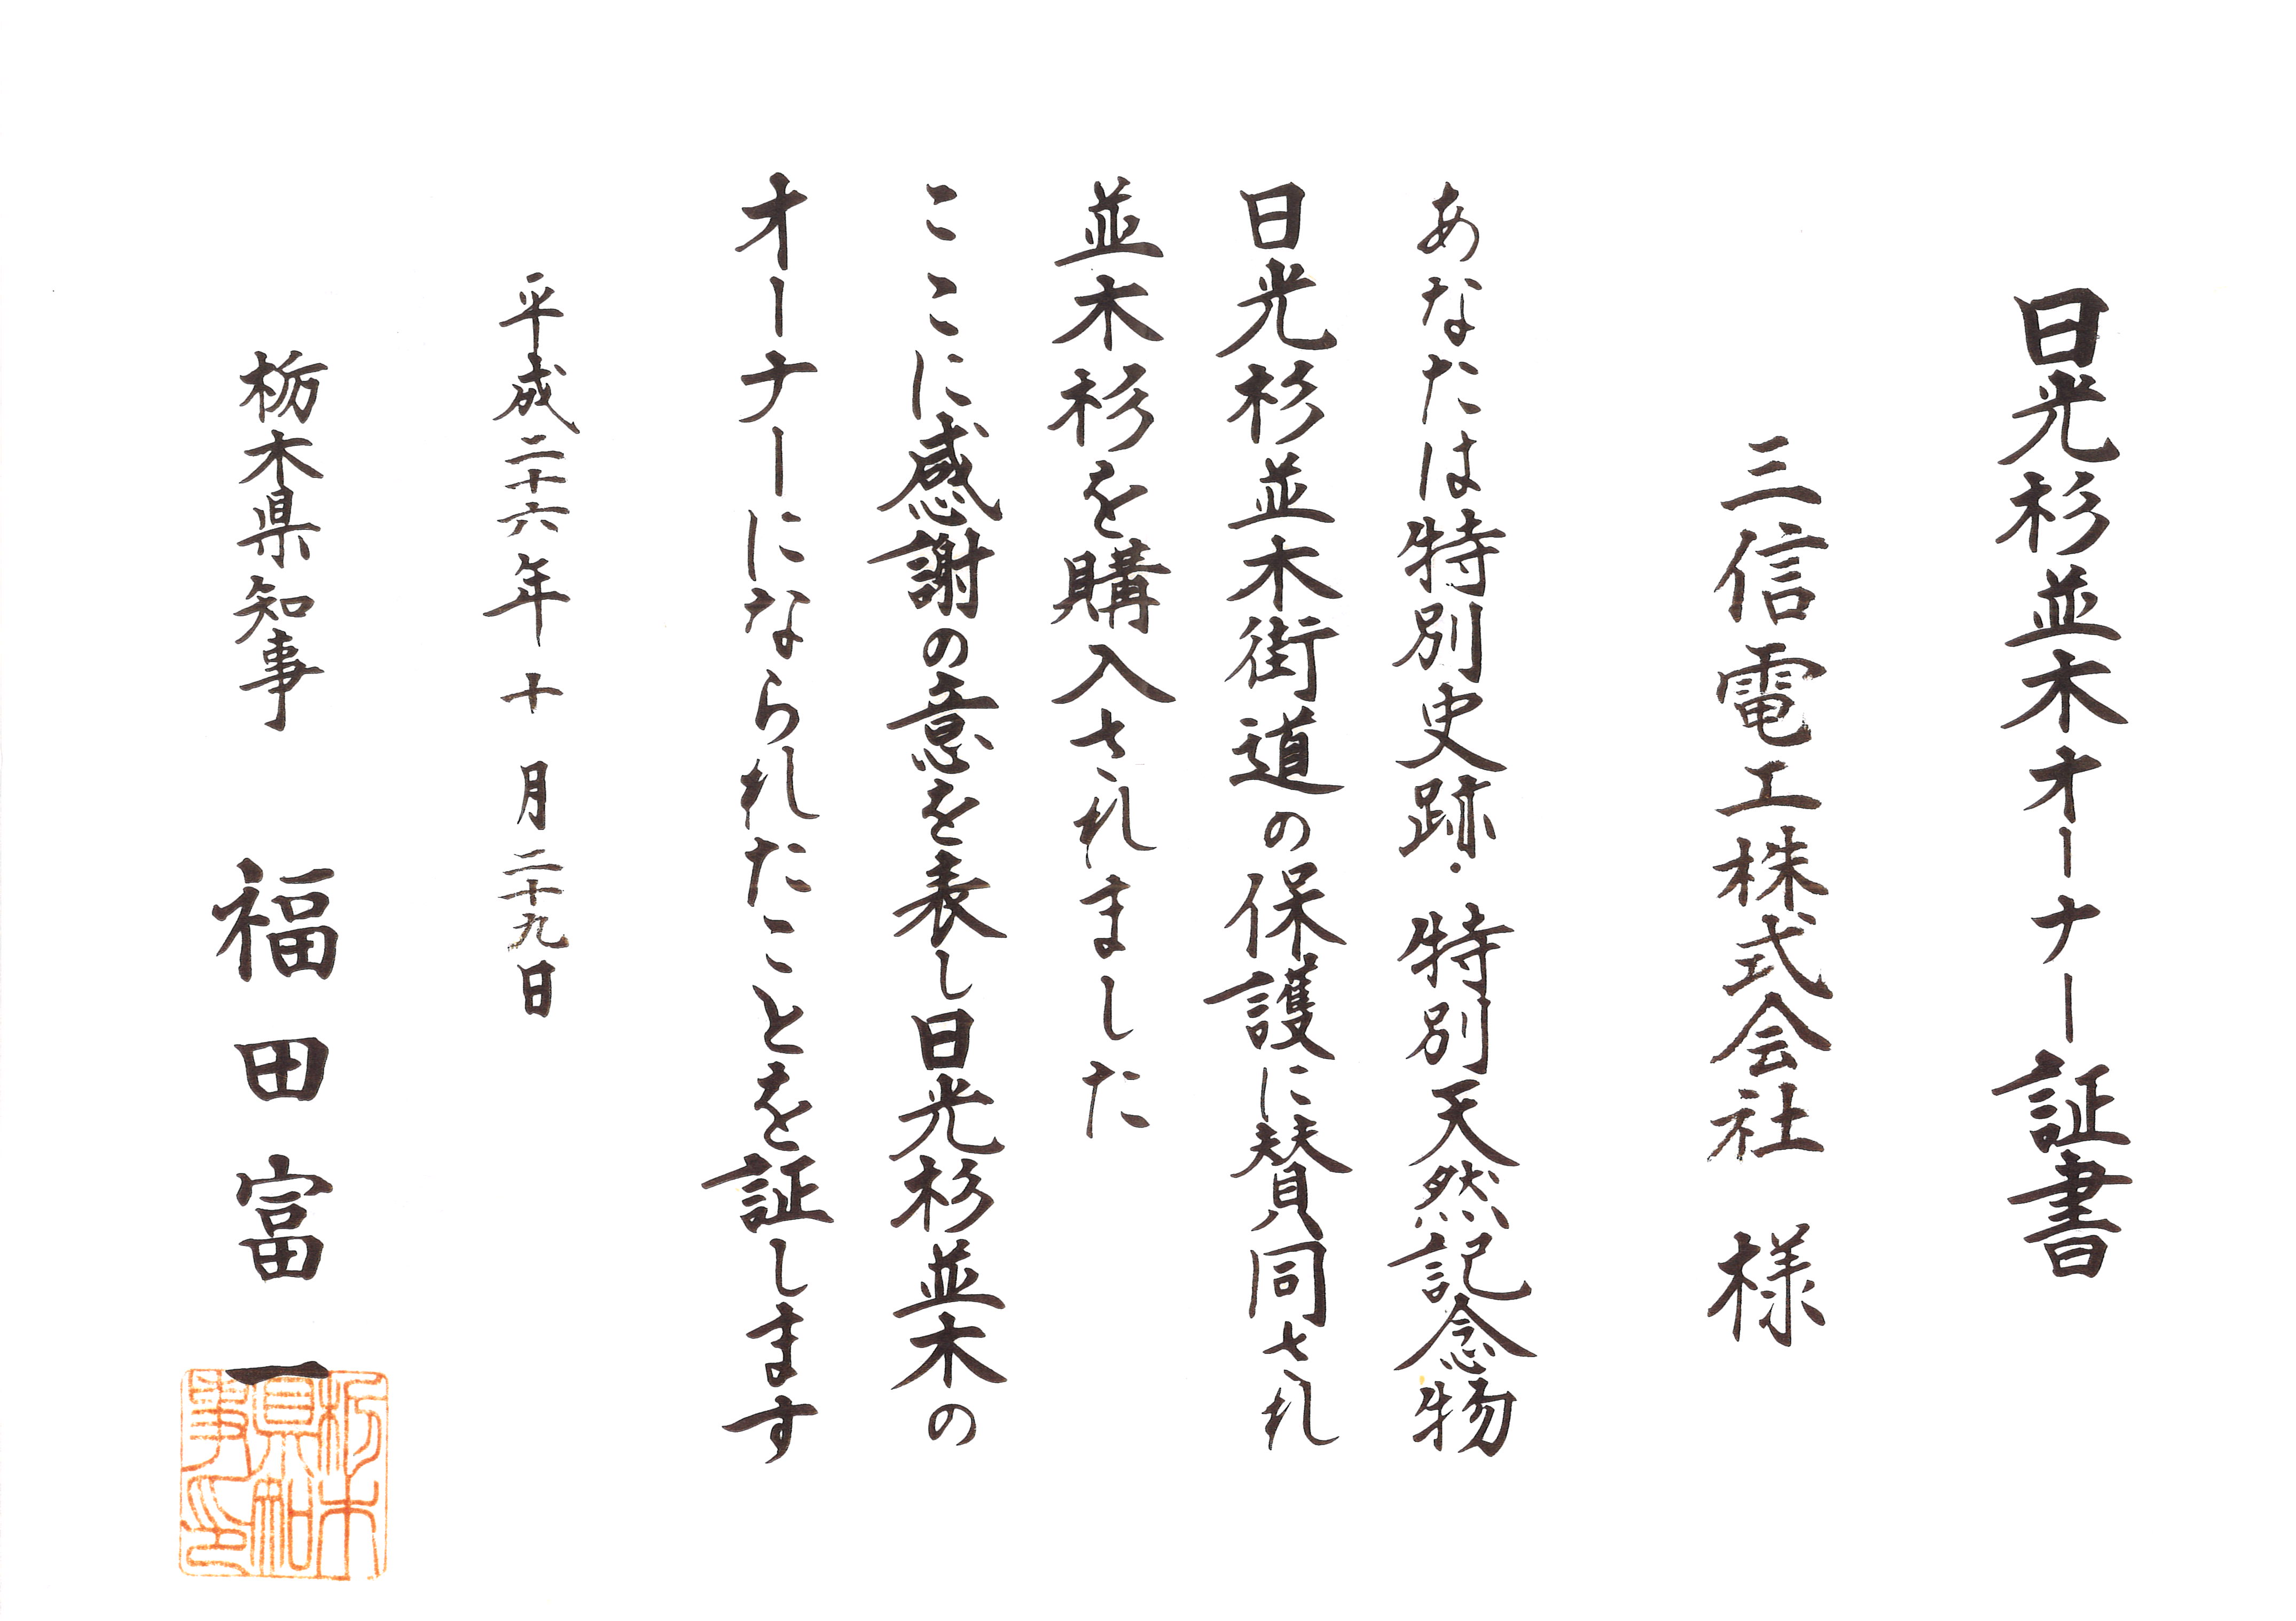 日光杉並木オーナー証書
三信電工株式会社 様
あなたは特別史跡・特別天然記念物
日光杉並木街道の保護に賛同され
並木杉を購入されました
ここに感謝の意を表し日光杉並木の
オーナーになられたことを証します
平成二十六年十月二十九日
栃木県知事 福田富一
栃木県知事印